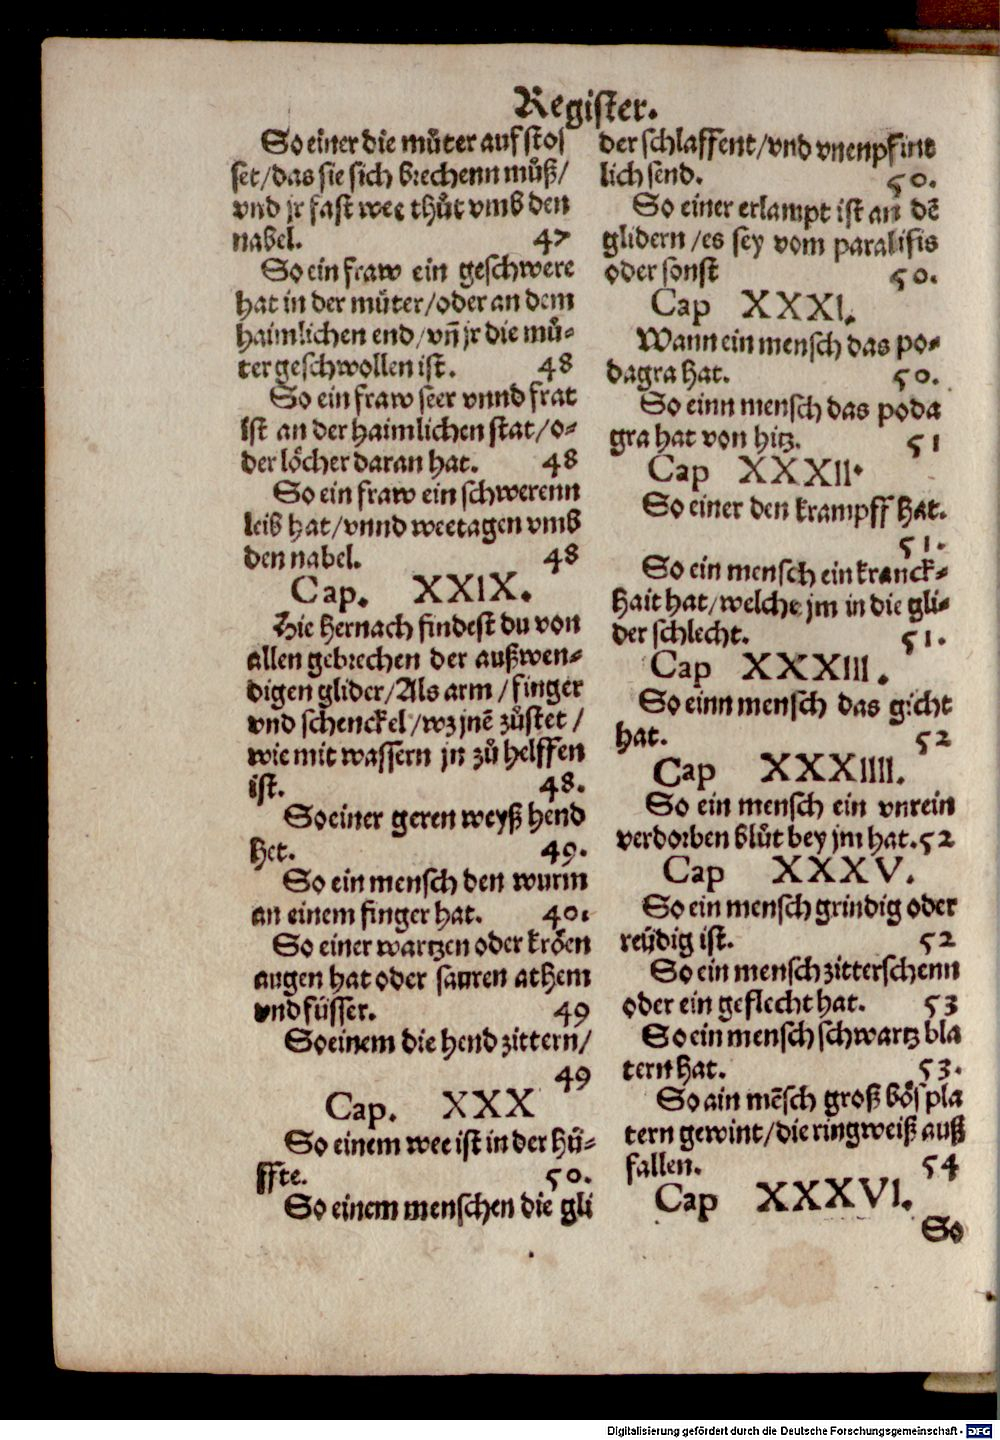 Register.
So einer die můter auf stos
set/das sie sich brechenn můß/
vnd jr fast wee thůt vmb den
nabel. 47
So ein fraw ein geschwere
hat in der můter/oder an dem
haimlichen end/vñ jr die mů-
ter geschwollen ist. 48
So ein fraw seer vnnd frat
ist an der haimlichen stat/o-
der löcher daran hat. 48
So ein fraw ein schwerenn
leib hat/vnnd weetagen vmb
den nabel. 48
Cap. XXIX.
Hie hernach findest du von
allen gebrechen der außwen-
digen glider/Als arm/finger
vnd schenckel/wz jnē zůstet/
wie mit wassern jn zů helffen
ist. 48.
So einer geren weyß hend
het. 49.
So ein mensch den wurm
an einem finger hat. 40.
So einer wartzen oder kröen
augen hat oder sauren athem
vnd füsser. 49
So einem die hend zittern/
49
Cap. XXX
So einem wee ist in der hü-
ffte. 50.
So einem menschen die gli
der schlaffent/vnd vnenpfint
lich send. 50.
So einer erlampt ist an dē
glidern/es sey vom paralisis
oder sonst 50.
Cap XXXI.
Wann ein mensch das po-
dagra hat. 50.
So einn mensch das poda
gra hat von hitz. 51
Cap XXXII.
So einer den krampff hat.
51.
So ein mensch ein kranck-
hait hat/welche jm in die gli-
der schlecht. 51.
Cap XXXIII.
So einn mensch das gicht
hat. 52
Cap XXXIIII.
So ein mensch ein vnrein
verdorben blůt bey jm hat. 52
Cap XXXV.
So ein mensch grindig oder
reüdig ist. 52
So ein mensch zitterschenn
oder ein geflecht hat. 53
So ein mensch schwartz bla
tern hat. 53.
So ain mēsch groß bös pla
tern gewint/die ringweiß auß
fallen. 54
Cap XXXVI.
So
Digitalisierung gefördert durch die Deutsche Forschungsgemeinschaft - DFG